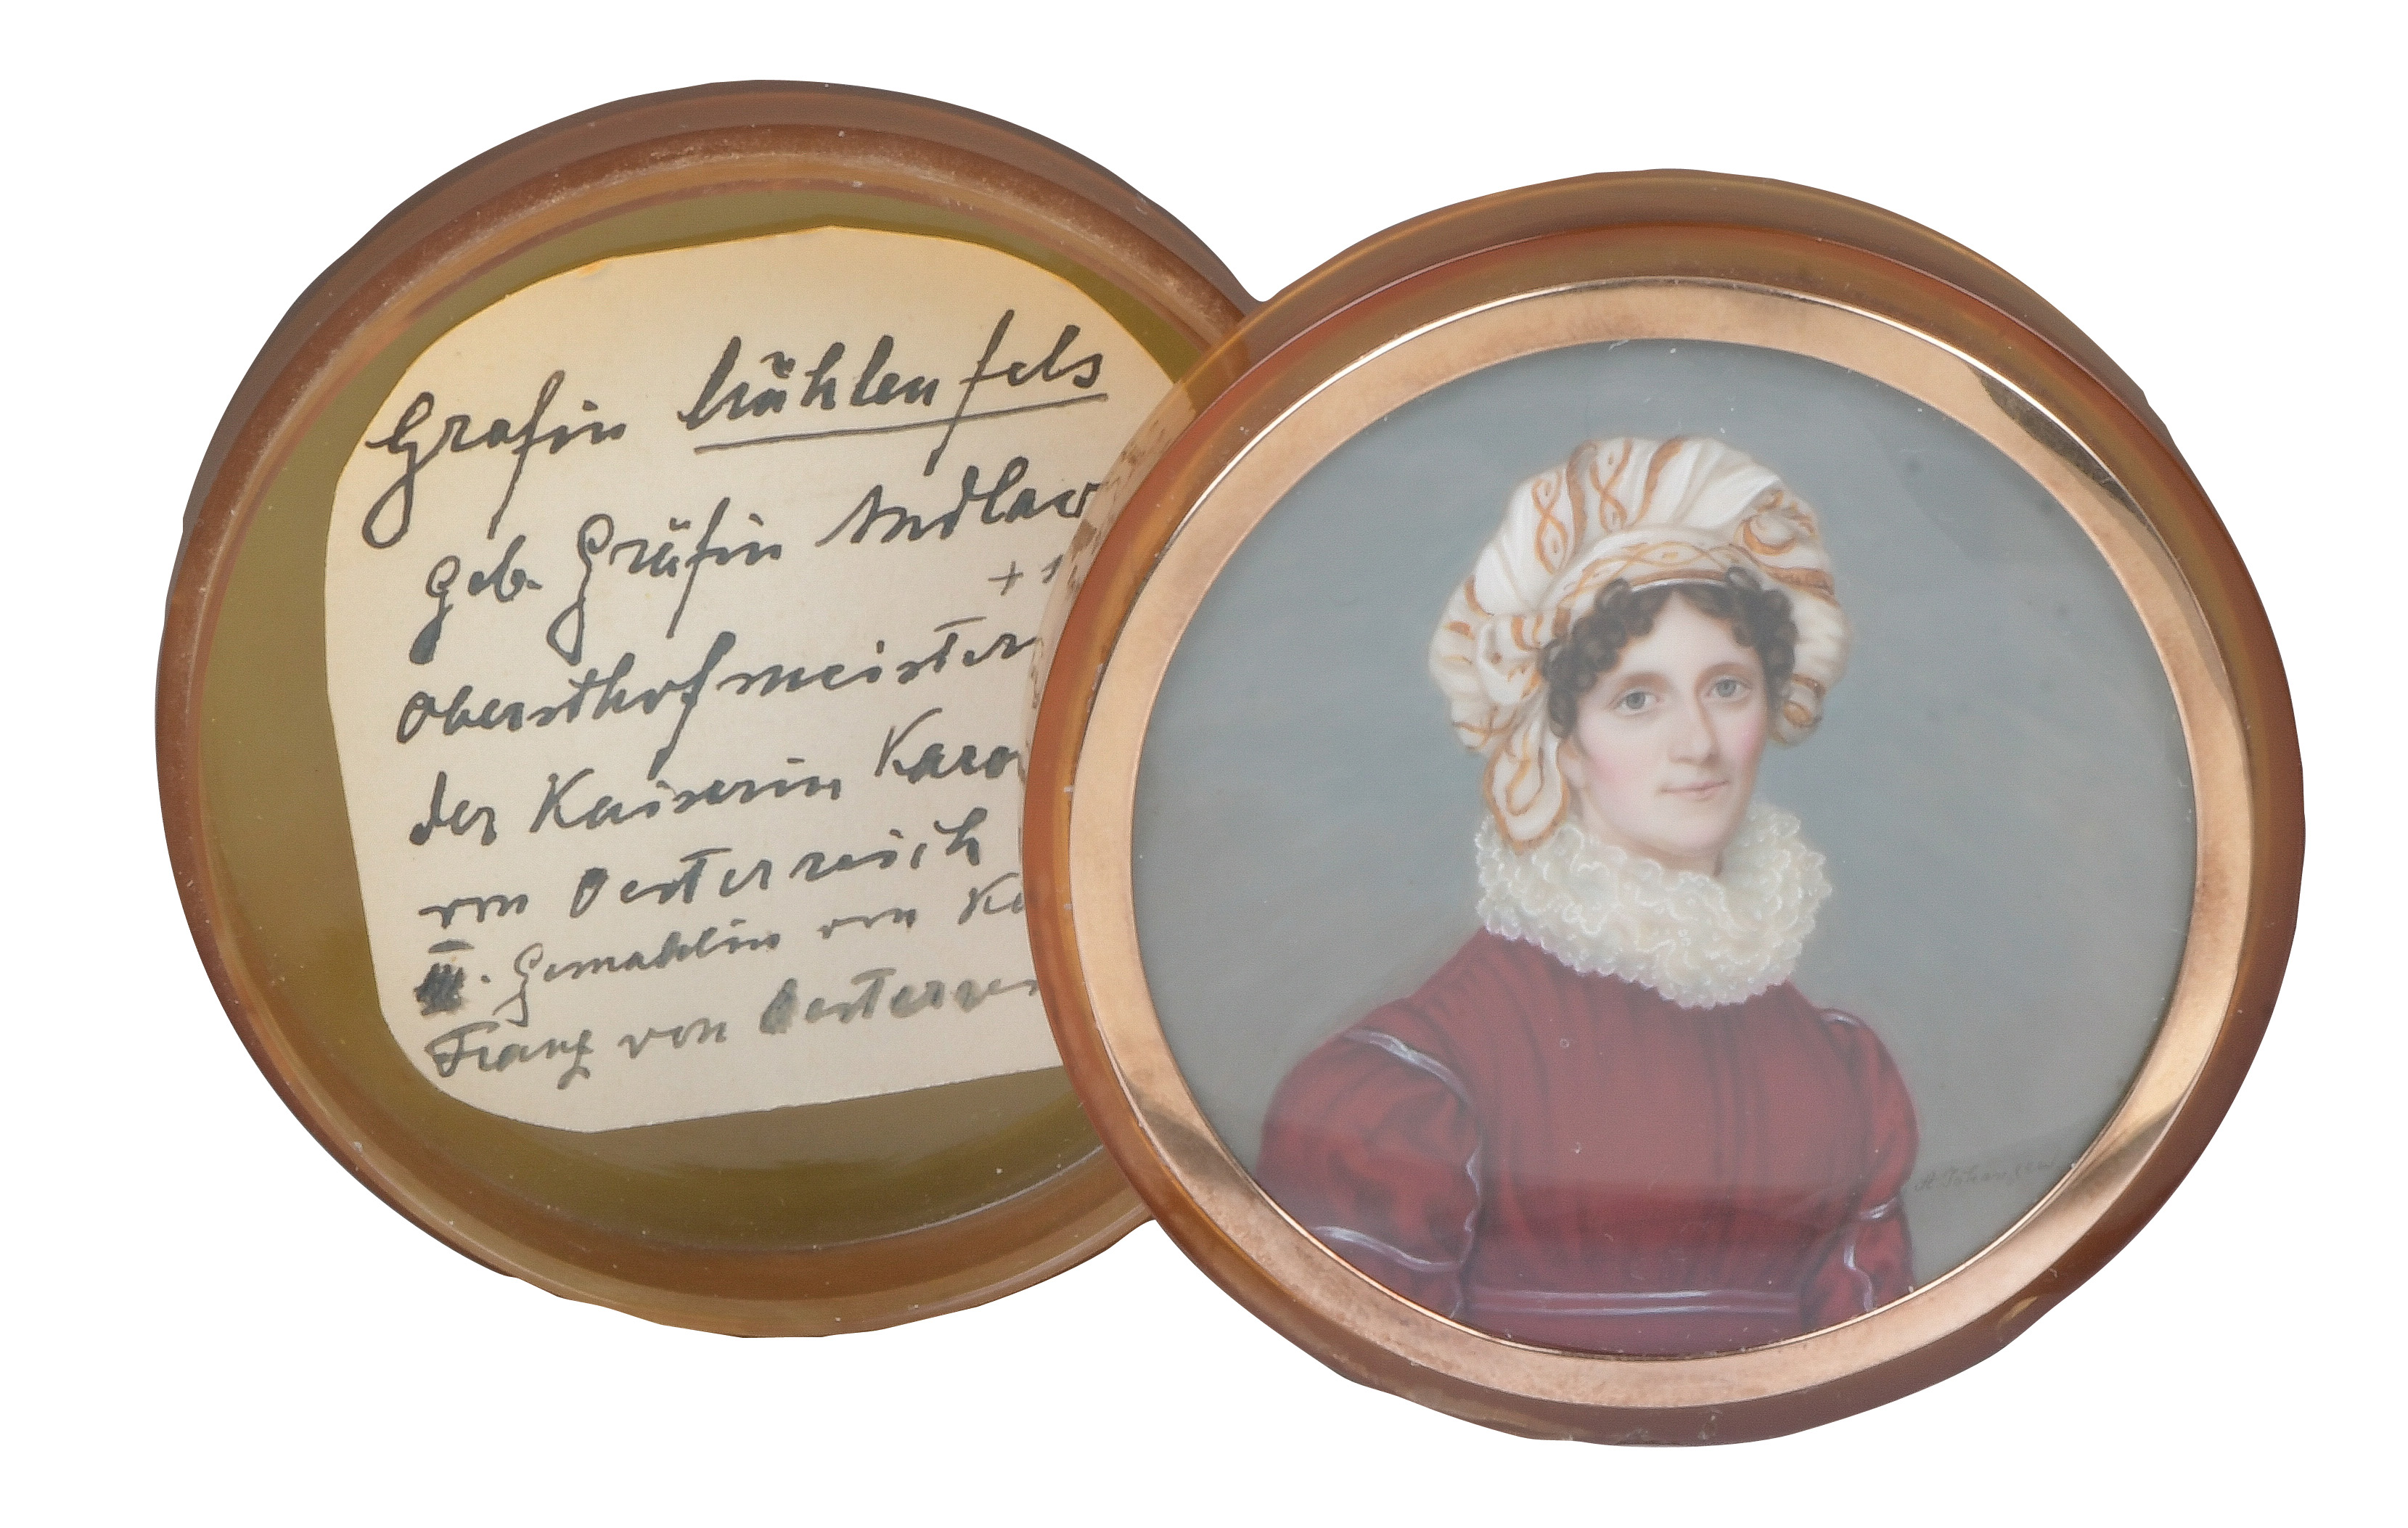 Grafin Mühlenfels
geb. Gräfin Andlaw
+ 1
Obersthofmeister
der Kaiserin Karo
von Oesterreich
III. Gemahlin von Ka
Franz von Oesterrei